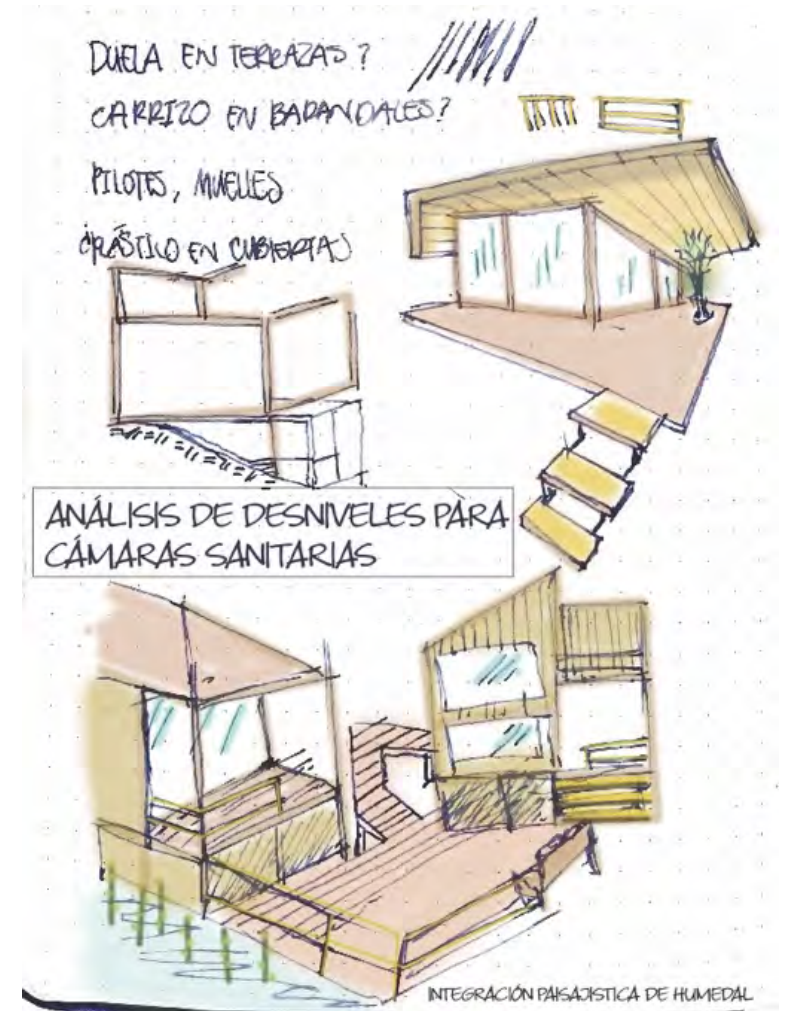 DUELA EN TERRAZAS?
CARRIZO EN BARANDALES?
PILOTES, MUELLES
EN CUBIERTAS
ANÁLISIS DE DESNIVELES PARA
CÁMARAS SANITARIAS
INTEGRACIÓN PAISAJISTICA DE HUMEDAL